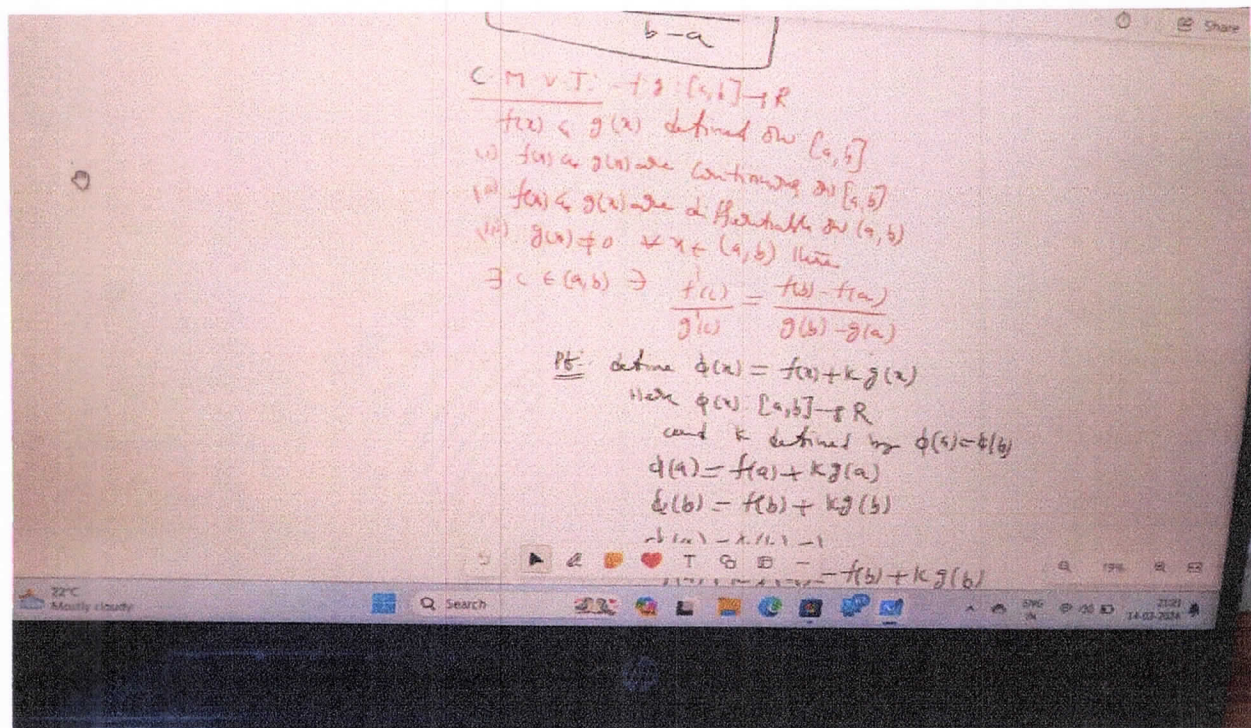 b-a
Share
C. M. V. T:- f g : [a,b] → R
f(x) & g(x) defined on [a,b]
(i) f(x) & g(x) are continuous on [a,b]
(ii) f(x) & g(x) are differentiable on (a,b)
(iii) g(x) ≠ 0 ∀ x ∈ (a,b) then
∃ c ∈ (a,b) ∋ f'(c)/g'(c) = f(b)-f(a)/g(b)-g(a)
Pf:- define ϕ(x) = f(x)+k g(x)
Here ϕ(x) [a,b] → R
and k defined by ϕ(a)=ϕ(b)
ϕ(a) = f(a) + k g(a)
ϕ(b) = f(b) + k g(b)
T
19%
- f(b) + k g(b)
22°C
Mostly cloudy
Search
ENG
IN
21:21
14-03-2024
hp